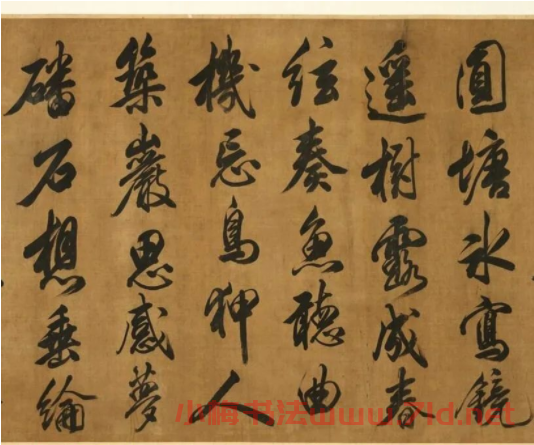 圓塘冰寫鏡
遥樹露成春
絃奏魚聽曲
機忘鳥狎人
築巖思感夢
磻石想垂綸
小梅书法www.71d.net